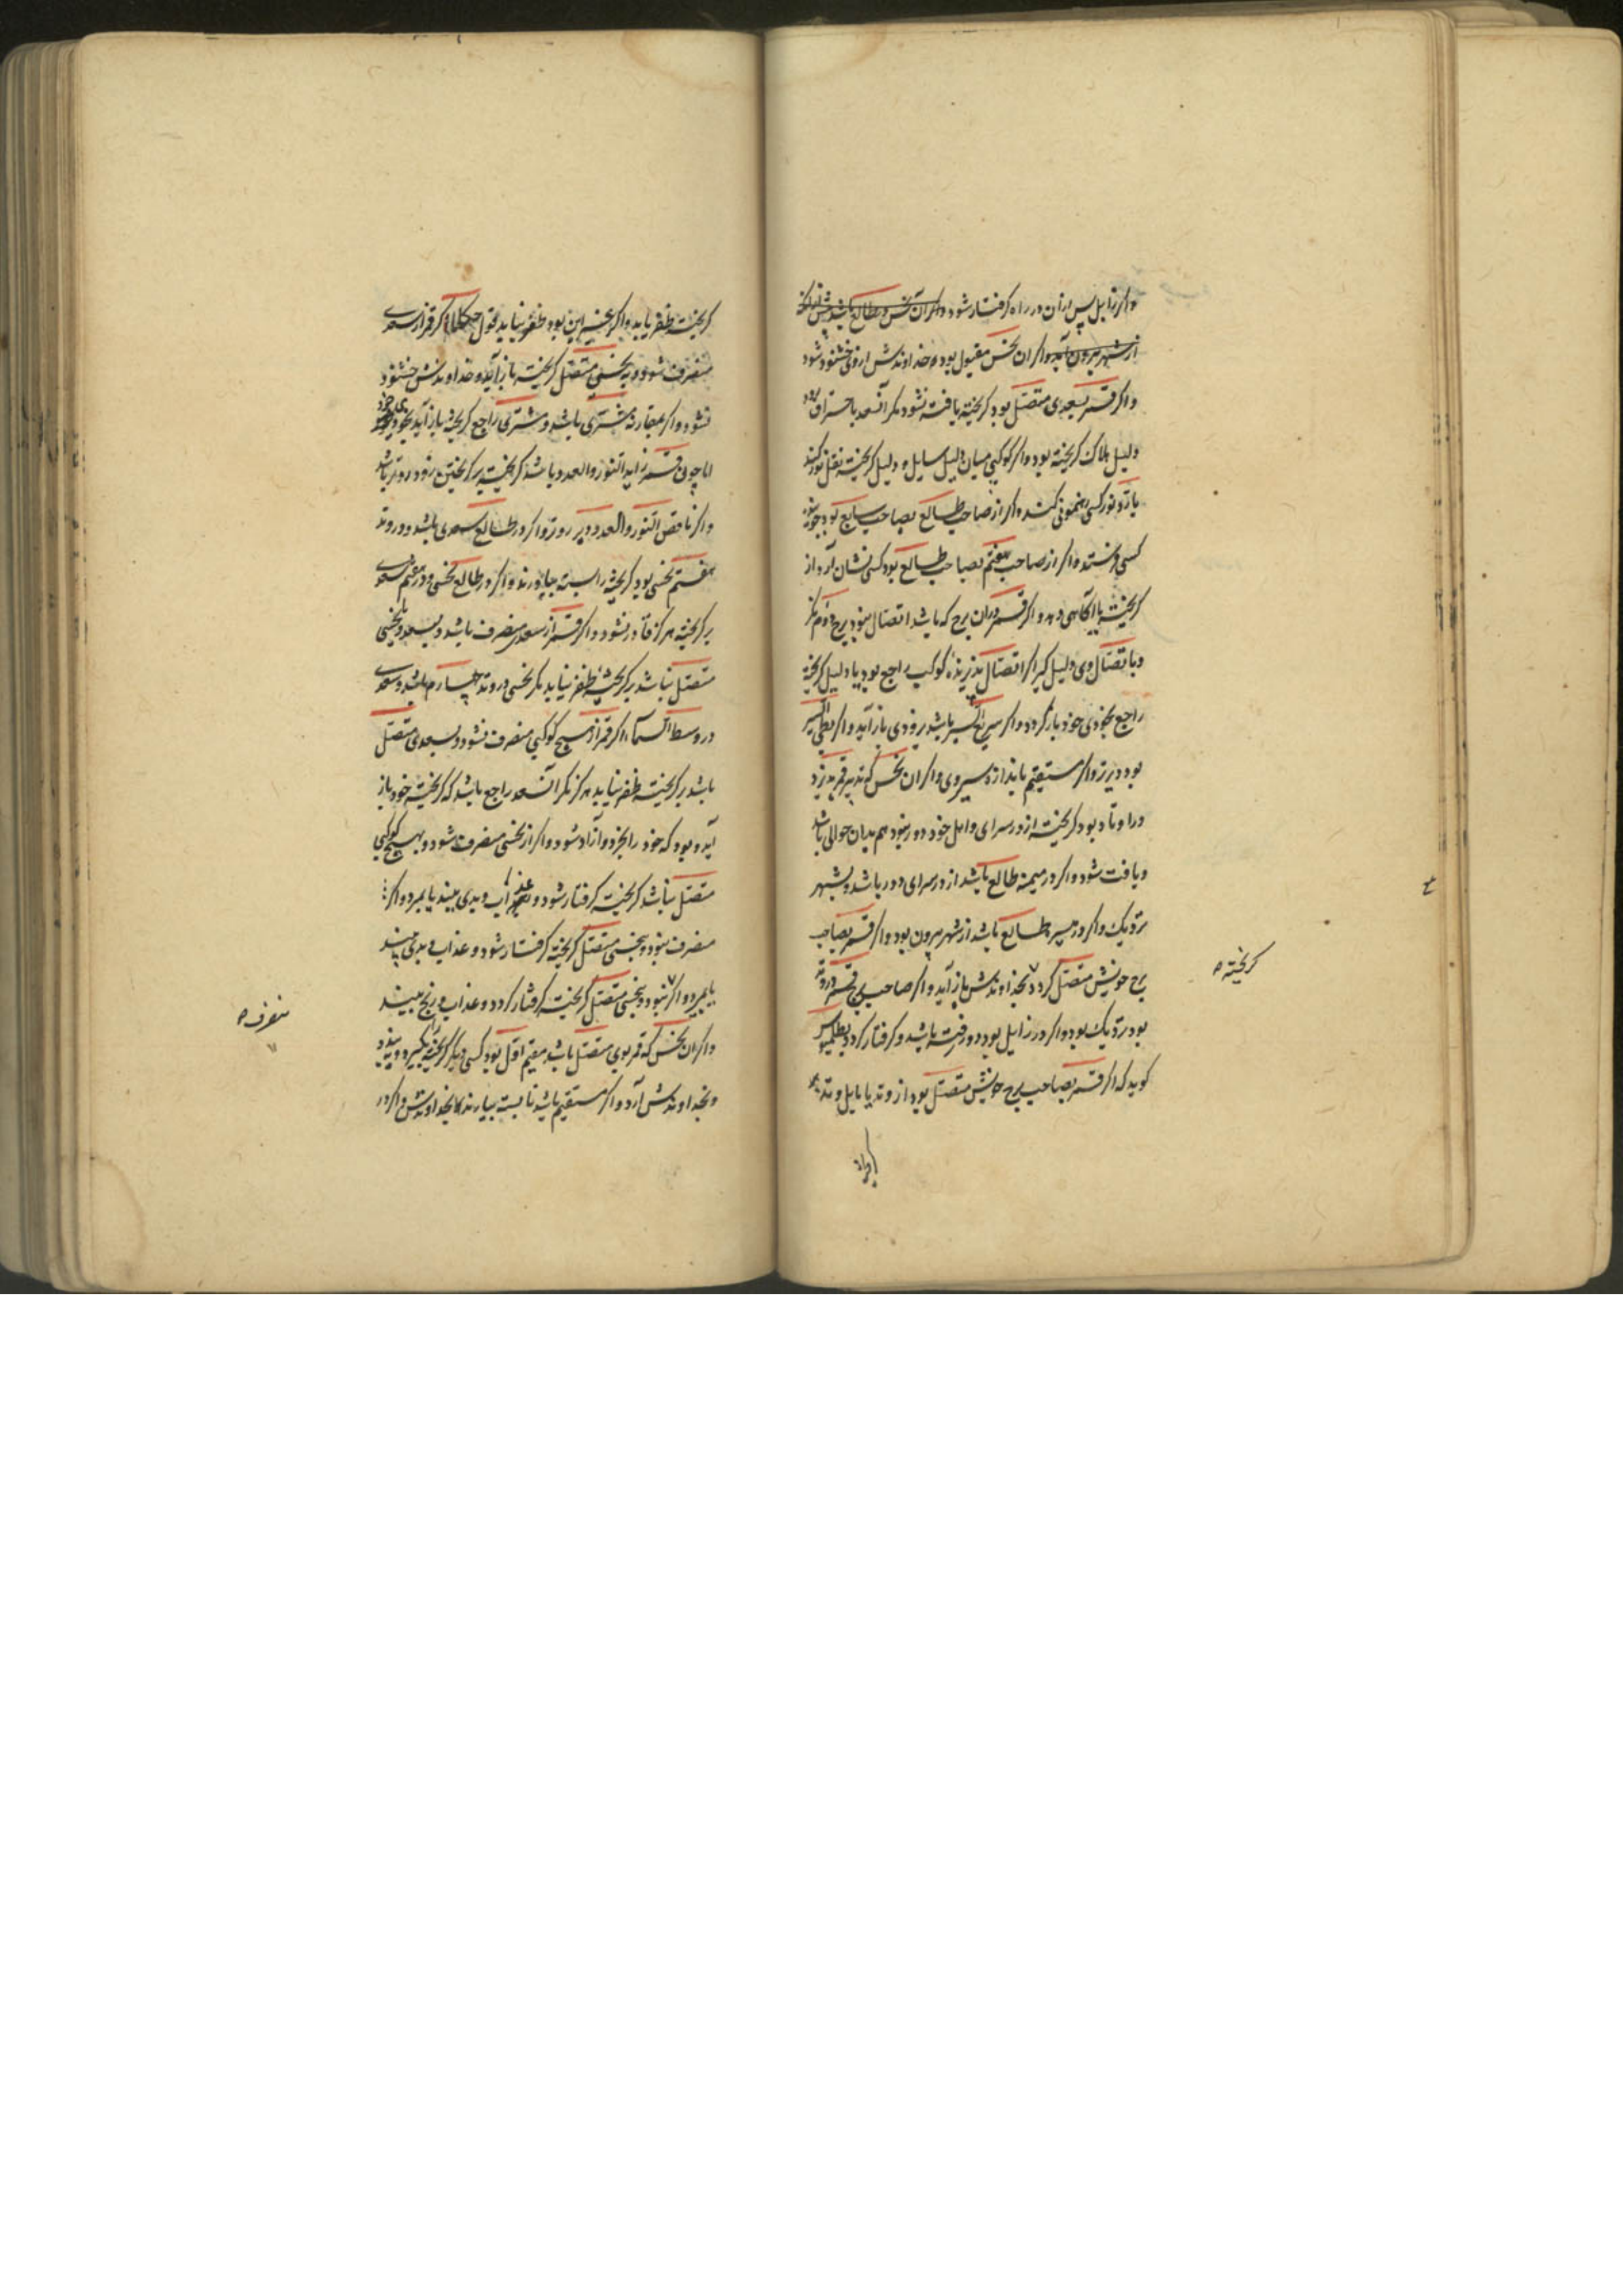 واکر زایل پس ازان در راه کرفتار شود واکر آن نحس در طالع باشد پیش ازانکه
از شهر بیرون آید واکر ان نحس مقبول بود خداوندش ازوی خشنود شود
واکر قمر بسعدی متصل بود کریخته یافته نشود مکر آنسعد باحتراق بود
دلیل هلاک کریخته بود واکر کوکبی میان دلیل سایل و دلیل کریخته نقل نور کند
یا رد نور کسی رهنمونی کند واکر از صاحب طالع بصاحب سابع بود جوینده
کسی فرستد واکر از صاحب هفتم بصاحب طالع بود کسی نشان آرد از
کریخته یا آکاهی دهد واکر قمر دران برج که باشد اتصال نبود برج دوم نکر
وبا تصال وی دلیل کیر اکر اتصال پذیرنده کوکب راجع بود یا دلیل کریخته
راجع بخودی خود باز کردد واکر سریع السیر باشد بزودی باز آید واکر بطی السیر
بود دیرتر واکر مستقیم باندازه سیر وی واکر ان نحس که تدبیر قمر پذیرد
در اوتاد بود کریخته از در سرای واهل خود دور نبود هم بدان حوالی باشد
ویافت شود واکر در میمنه طالع باشد از در سرای دور باشد وبشهر
نزدیک واکر در میسره طالع باشد از شهر بیرون بود واکر قمر بصاحب
برج خویش متصل کردد بخداوندش باز آید واکر صاحب برج قمر در وتد
بود نزدیک بود واکر در زایل بود دور رفته باشد وکرفتار کردد بطلمیوس
کوید که اکر قمر بصاحب برج خویش متصل بود از وتد یا مایل وتد بر
کریخته ه
کریخته ظفر یابد واکر بغیر این بود ظفر نیابد بقول حکما اکر قمر از سعدی
منصرف شود وبه نحسی متصل کریخته باز آید وخداوندش خشنود
نشود واکر بمقارنه مشتری باشد ومشتری راجع کریخته باز آید بخودی خود
اما چون قمر زاید النور والعدد باشد کریخته بر کریختن زود رو تر باشد
واکر ناقص النور والعدد دیر رو تر واکر در طالع سعدی باشد ودر وتد
هفتم نحسی بود کریخته را بسته بیاورند واکر در طالع نحسی ودر هفتم سعدی
بر کریخته هرکز قادر نشود واکر قمر از سعدی منصرف باشد وبسعد یا نحسی
متصل نباشد بر کریخته ظفر نیابد مکر نحسی در وتد چهارم باشد وسعدی
در وسط السما اکر قمر از هیچ کوکبی منصرف نشود وبسعدی متصل
باشد بر کریخته ظفر نیابد هرکز مکر آنسعد راجع باشد که کریخته خود باز
آید وبود که خود را بخرد وآزاد شود واکر از نحسی منصرف شود وبهیچ کوکبی
متصل نباشد کریخته کرفتار شود وعذاب وبدی بیند یا بمیرد واکر
منصرف نبود وبنحسی متصل کریخته کرفتار شود وعذاب وبدی بیند
یا بمیرد واکر نبود وبنحسی متصل کریخته کرفتار کردد وعذاب ورنج بیند
واکر ان نحس که قمر بوی متصل باشد مقیم اول بود کسی دیکر کریخته را بکیرد وببندد
وبخداوندش آرد واکر مستقیم باشد تا بسته بیارند تا بخداوندش واکر در
منصرف ه